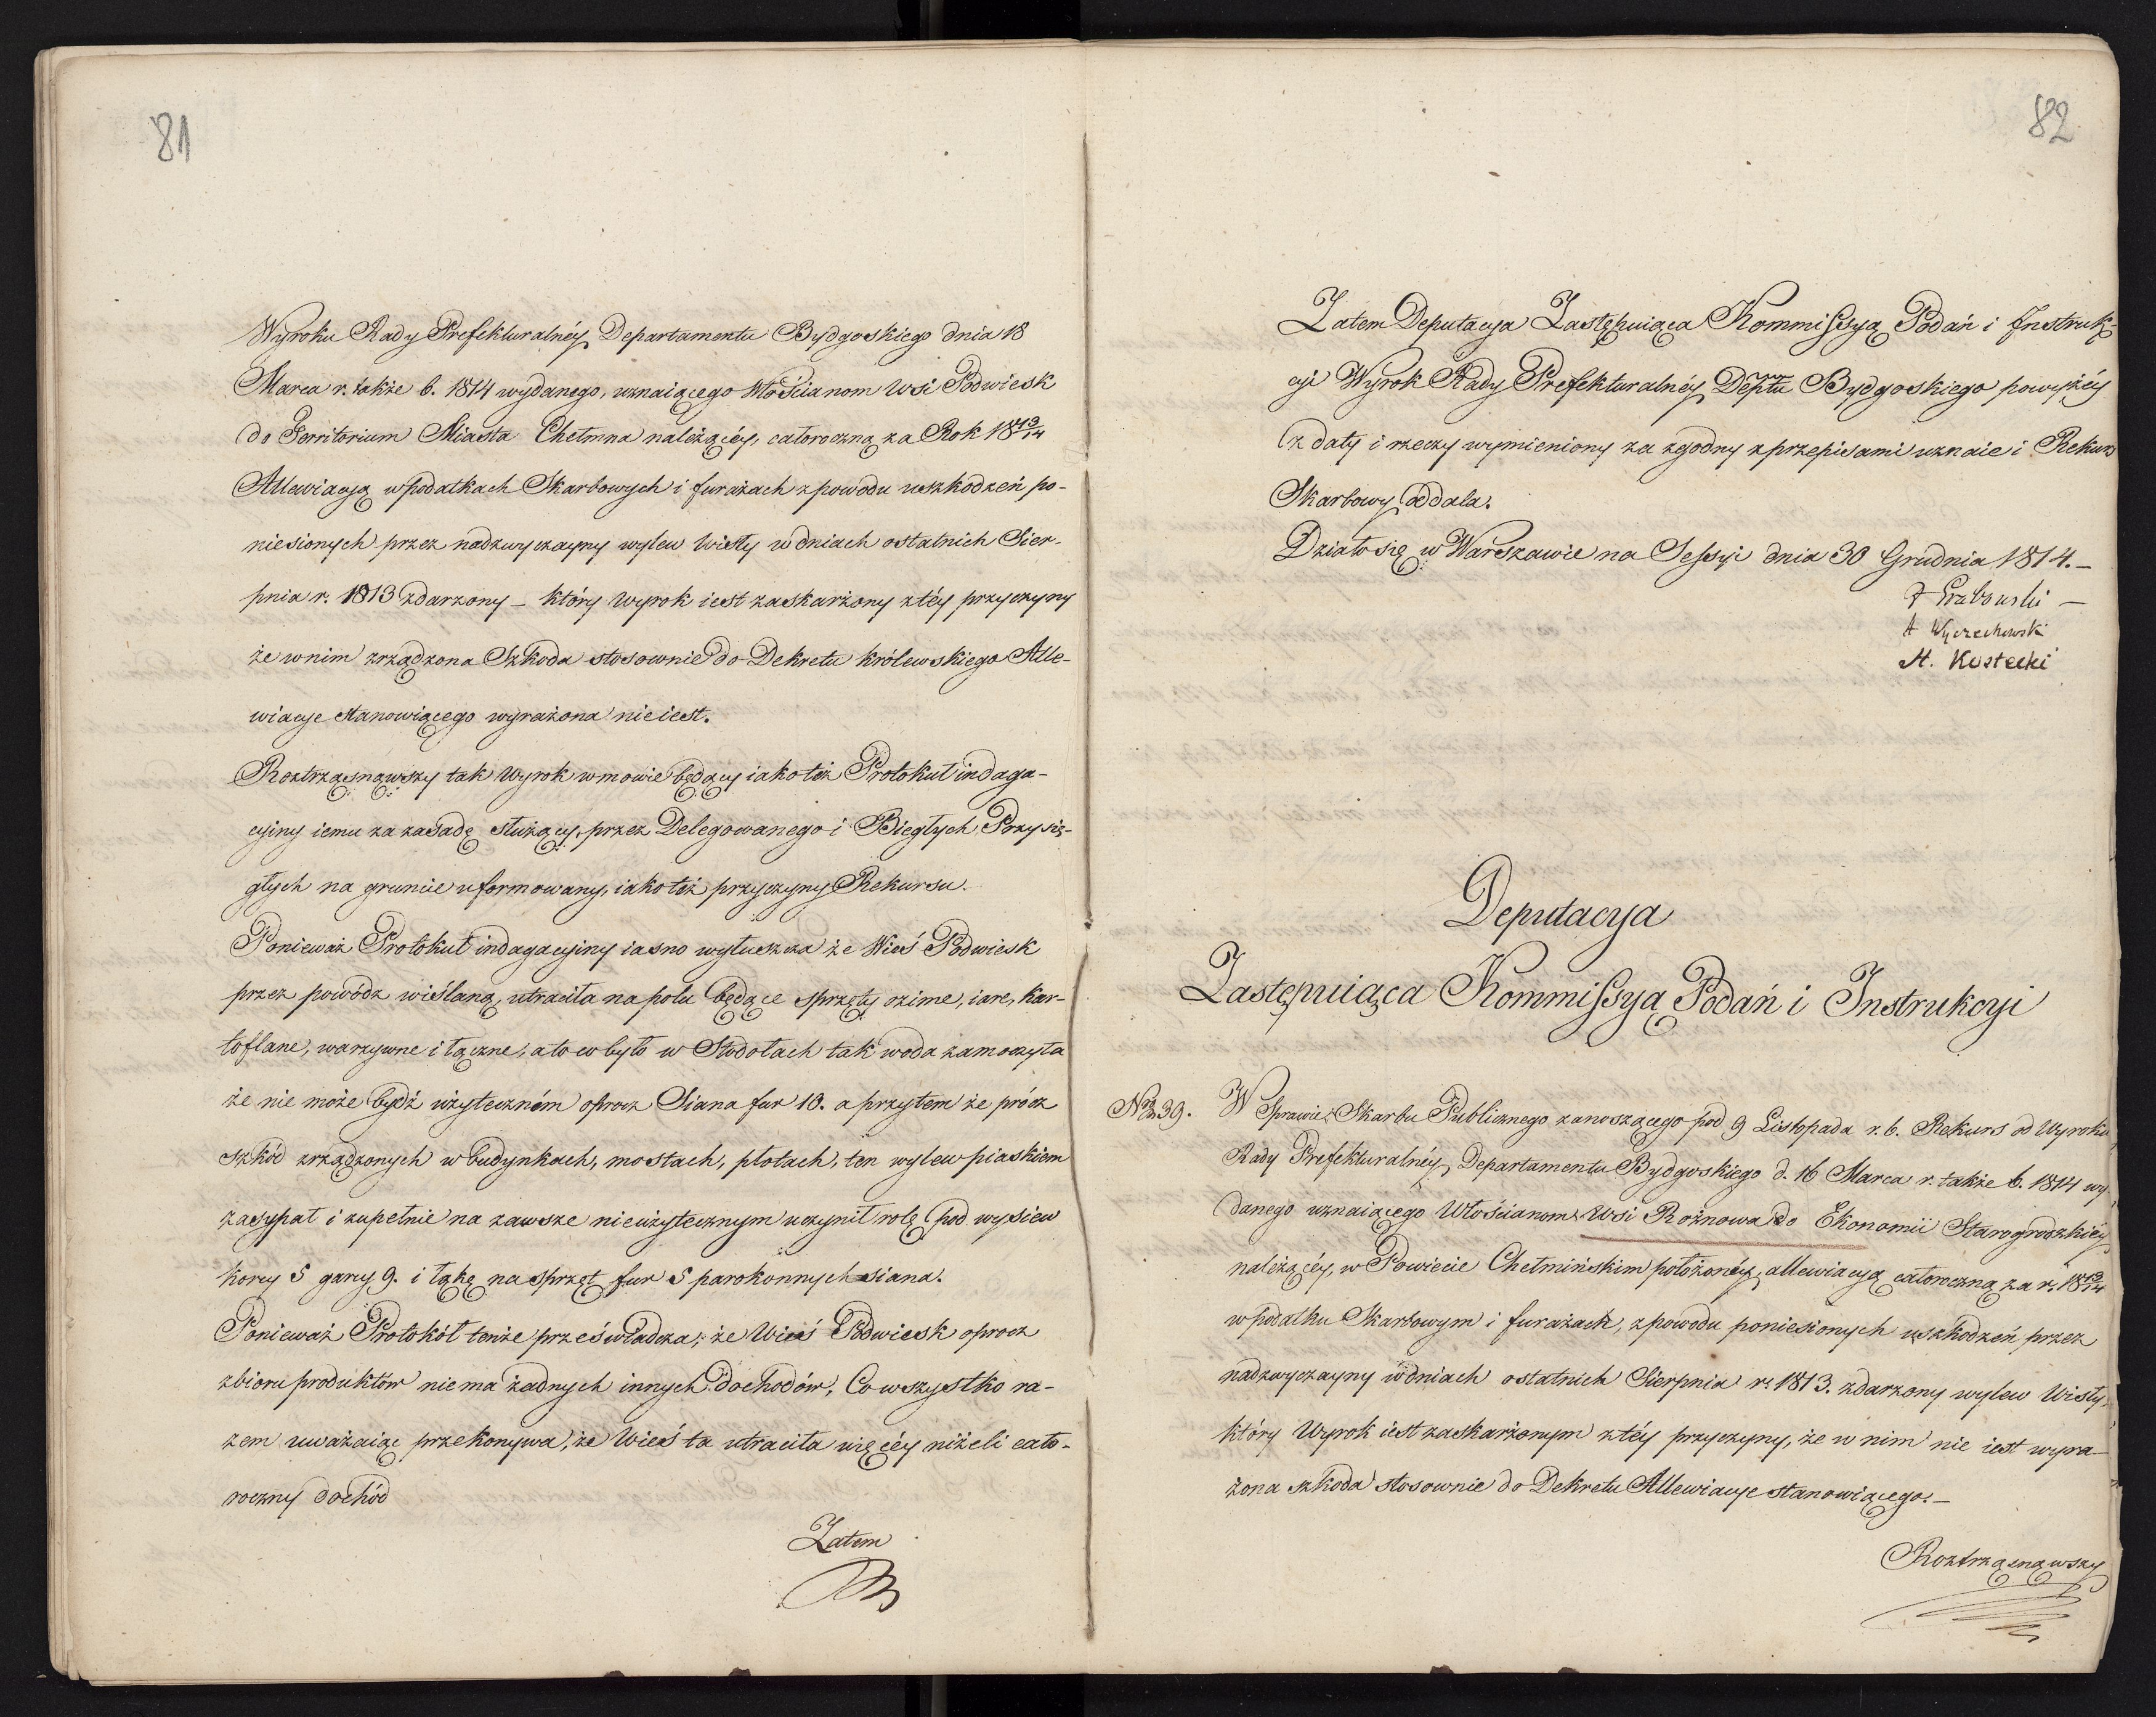 81
Wyroku Rady Prefekturalnéy Departamentu Bydgoskiego dnia 18
Marca r. także b. 1814 wydanego, uznaiącego Włościanom Wsi Podwiesk
do Territorium Miasta Chełmna należącéy, całoroczną za Rok 1813/14
Allewiacyą w podatkach Skarbowych i furażach z powodu uszkodzeń po-
niesionych przez nadzwyczayny wylew Wisły w dniach ostatnich Sier-
pnia r. 1813 zdarzony – który wyrok iest zaskarżony z téy przyczyny
że w nim zrządzona Szkoda stosownie do Dekretu królewskiego Alle-
wiacye stanowiącego wyrażona nie iest.
Roztrząsnąwszy tak Wyrok w mowie będący iako też Protokuł indaga-
cyiny iemu za zasadę służący, przez Delegowanego i Biegłych Przysię-
głych na gruncie uformowany, iako też przyczyny Rekursu.
Ponieważ Protokuł indagacyiny iasno wyłuszcza że Wieś Podwiesk
przez powódz wiślaną, utraciła na polu będące sprzęty ozime, iare, kar-
toflane, warzywne i łączne, a to co było w Stodołach tak woda zamoczyła
że nie może bydź użyteczném oprocz Siana fur 10. a przytem że prócz
szkód zrządzonych w budynkach, mostach, płotach, ten wylew piaskiem
zasypał i zupełnie na zawsze nieużytecznym uczynił rolę pod wysiew
korcy 5 garcy 9. i łąkę na sprzęt fur 5 parokonnych siana.
Ponieważ Protokół tenże przeświadcza, że Wieś Podwiesk oprocz
zbioru produktów nie ma żadnych innych dochodów, Co wszystko ra-
zem uważaiąc przekonywa, że Wieś ta utraciła więcéy niżeli cało-
roczny dochód
Zatem
82
Zatem Deputacya Zastępuiąca Kommissyą Podań i Instruk-
cyi Wyrok Rady Prefekturalnéy Deptu Bydgoskiego powyżéy
z daty i rzeczy wymieniony za zgodny z przepisami uznaie i Rekurs
Skarbowy oddala.
Działo się w Warszawie na Sessyi dnia 30 Grudnia 1814. –
Grabowski –
A Wyczechowski
M. Kostecki
Deputacya
Zastępuiąca Kommissyą Podań i Instrukcyi
Nro 39. W Sprawie Skarbu Publicznego zanoszącego pod 9 Listopada r. b. Rekurs od Wyroku
Rady Prefekturalnéy Departamentu Bydgoskiego d. 16 Marca r. także b. 1814 wy-
danego uznaiącego Włościanom Wsi Rożnowa do Ekonomii Starogrodzkiéy
należącéy, w Powiecie Chełmińskim położonéy, allewiacyą całoroczną za r. 1813/14
w podatku Skarbowym i furażach, z powodu poniesionych uszkodzeń przez
nadzwyczayny w dniach ostatnich Sierpnia r. 1813. zdarzony wylew Wisły,
który Wyrok iest zaskarżonym z téy przyczyny, że w nim nie iest wyra-
żona szkoda stosownie do Dekretu Allewiacye stanowiącego. –
Roztrząsnąwszy